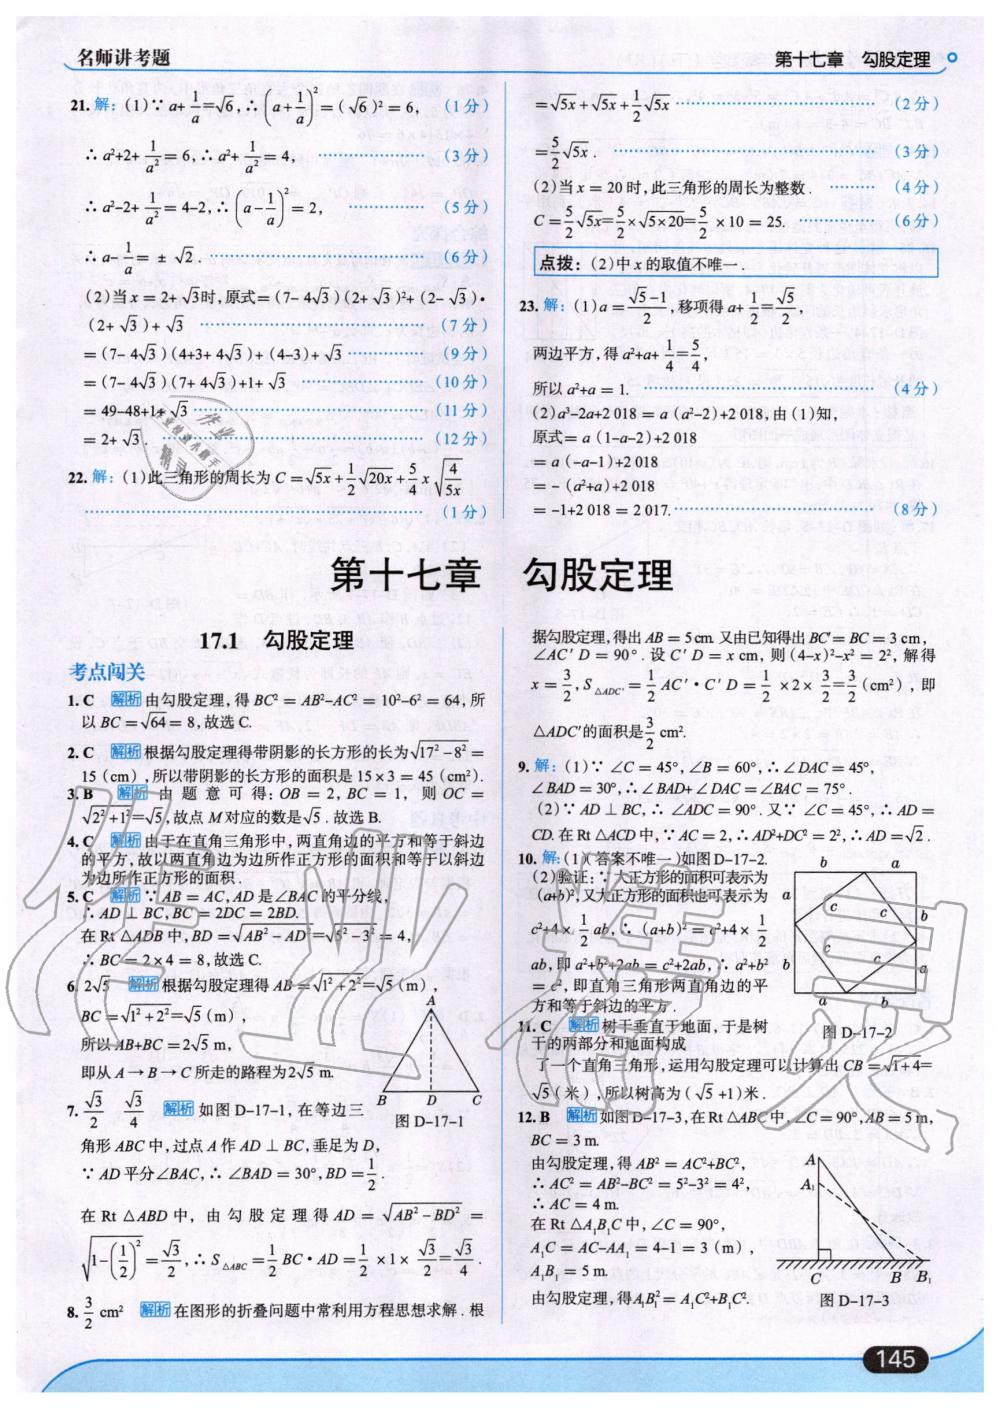 名师讲考题
第十七章 勾股定理
21. 解：(1)∵ a+1/a=√6,∴(a+1/a)²=(√6)²=6, (1分)
∴ a²+2+1/a²=6,∴ a²+1/a²=4, (3分)
∴ a²-2+1/a²=4-2,∴(a-1/a)²=2, (5分)
∴ a-1/a=±√2. (6分)
(2)当x=2+√3时,原式=(7-4√3)(2+√3)²+(2-√3)·
(2+√3)+√3 (7分)
=(7-4√3)(4+3+4√3)+(4-3)+√3 (9分)
=(7-4√3)(7+4√3)+1+√3 (10分)
=49-48+1+√3 (11分)
=2+√3. (12分)
22. 解：(1)此三角形的周长为C=√5x+1/2√20x+5/4 x√4/5x
(1分)
=√5x+√5x+1/2√5x (2分)
=5/2√5x. (3分)
(2)当x=20时,此三角形的周长为整数. (4分)
C=5/2√5x=5/2×√5×20=5/2×10=25. (6分)
点拨：(2)中x的取值不唯一.
23. 解：(1)a=√5-1/2,移项得a+1/2=√5/2,
两边平方,得a²+a+1/4=5/4,
所以a²+a=1. (4分)
(2)a³-2a+2 018=a(a²-2)+2 018,由(1)知,
原式=a(1-a-2)+2 018
=a(-a-1)+2 018
=-(a²+a)+2 018
=-1+2 018=2 017. (8分)
第十七章 勾股定理
17.1 勾股定理
考点闯关
1. C 解析 由勾股定理,得BC²=AB²-AC²=10²-6²=64,所
以BC=√64=8,故选C.
2. C 解析 根据勾股定理得带阴影的长方形的长为√17²-8²=
15(cm),所以带阴影的长方形的面积是15×3=45(cm²).
3. B 解析 由题意可得：OB=2,BC=1,则OC=
√2²+1²=√5,故点M对应的数是√5.故选B.
4. C 解析 由于在直角三角形中,两直角边的平方和等于斜边
的平方,故以两直角边为边所作正方形的面积和等于以斜边
为边所作正方形的面积.
5. C 解析 ∵AB=AC,AD是∠BAC的平分线,
∴AD⊥BC,BC=2DC=2BD.
在Rt△ADB中,BD=√AB²-AD²=√5²-3²=4,
∴BC=2×4=8,故选C.
6. 2√5 解析 根据勾股定理得AB=√1²+2²=√5(m),
BC=√1²+2²=√5(m),
所以AB+BC=2√5 m,
即从A→B→C所走的路程为2√5 m.
A
B D C
图D-17-1
7. √3/2 √3/4 解析 如图D-17-1,在等边三
角形ABC中,过点A作AD⊥BC,垂足为D,
∵AD平分∠BAC,∴∠BAD=30°,BD=1/2.
在Rt△ABD中,由勾股定理得AD=√AB²-BD²=
√1-(1/2)²=√3/2,∴S△ABC=1/2BC·AD=1/2×1×√3/2=√3/4.
8. 3/2 cm² 解析 在图形的折叠问题中常利用方程思想求解.根
据勾股定理,得出AB=5 cm.又由已知得出BC'=BC=3 cm,
∠AC'D=90°.设C'D=x cm,则(4-x)²-x²=2²,解得
x=3/2,S△ADC'=1/2AC'·C'D=1/2×2×3/2=3/2(cm²),即
△ADC'的面积是3/2 cm².
9. 解：(1)∵∠C=45°,∠B=60°,∴∠DAC=45°,
∠BAD=30°,∴∠BAD+∠DAC=∠BAC=75°.
(2)∵AD⊥BC,∴∠ADC=90°.又∵∠C=45°,∴AD=
CD.在Rt△ACD中,∵AC=2,∴AD²+DC²=2²,∴AD=√2.
10. 解：(1)(答案不唯一)如图D-17-2.
(2)验证：∵大正方形的面积可表示为
(a+b)²,又大正方形的面积也可表示为
c²+4×1/2ab,∴(a+b)²=c²+4×1/2
ab,即a²+b²+2ab=c²+2ab,∴a²+b²
=c²,即直角三角形两直角边的平
方和等于斜边的平方.
b a
a c c b
b c c a
a b
图D-17-2
11. C 解析 树干垂直于地面,于是树
干的两部分和地面构成
了一个直角三角形,运用勾股定理可以计算出CB=√1+4=
√5(米),所以树高为(√5+1)米.
12. B 解析 如图D-17-3,在Rt△ABC中,∠C=90°,AB=5 m,
BC=3 m.
由勾股定理,得AB²=AC²+BC²,
∴AC²=AB²-BC²=5²-3²=4²,
∴AC=4 m.
在Rt△A₁B₁C中,∠C=90°,
A₁C=AC-AA₁=4-1=3(m),
A₁B₁=5 m.
由勾股定理,得A₁B₁²=A₁C²+B₁C².
A
A₁
C B B₁
图D-17-3
145